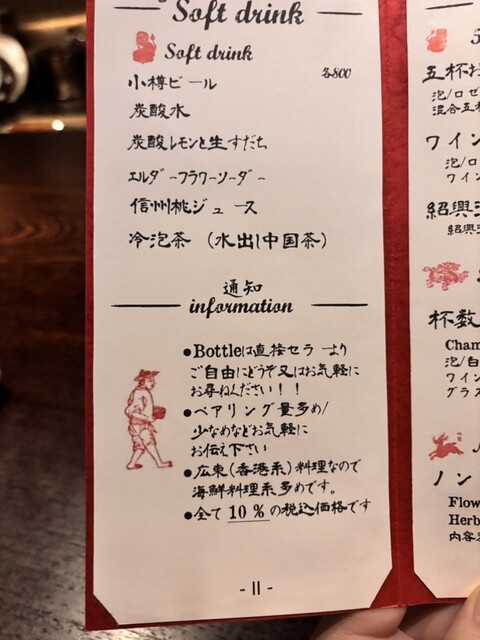 Soft drink
Soft drink
各800
小樽ビール
炭酸水
炭酸レモンと生すだち
エルダーフラワーソーダー
信州桃ジュース
冷泡茶 (水出し中国茶)
通知
information
●Bottleは直接セラーより
ご自由にどうぞ又はお気軽に
お尋ねください!!
●ペアリング量多め/
少なめなどお気軽に
お伝え下さい
●広東(香港系)料理なので
海鮮料理系多めです。
●全て10%の税込価格です
- 11 -
5
五杯お
泡/ロゼ
混合五
ワイン
泡/ロ
ワイン
紹興
紹興
杯数
Cham
泡/白
ワイン
グラス
ノン
Flow
Herb
内容